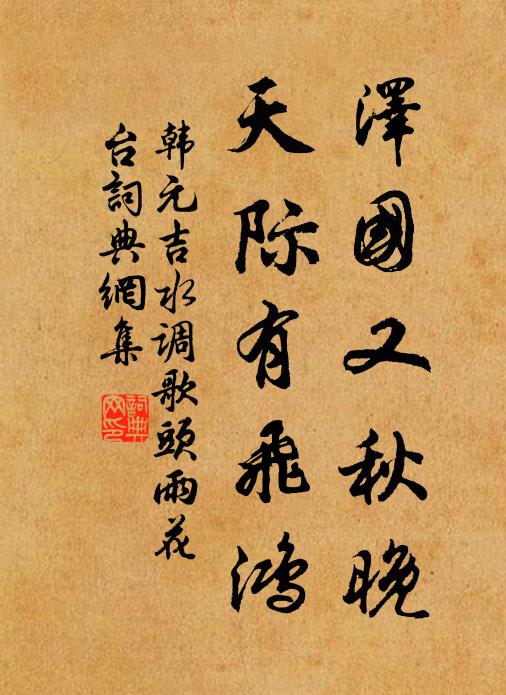 澤國又秋晚
天际有飛鴻
韩元吉水调歌頭雨花
台詞典網集
詞典网印